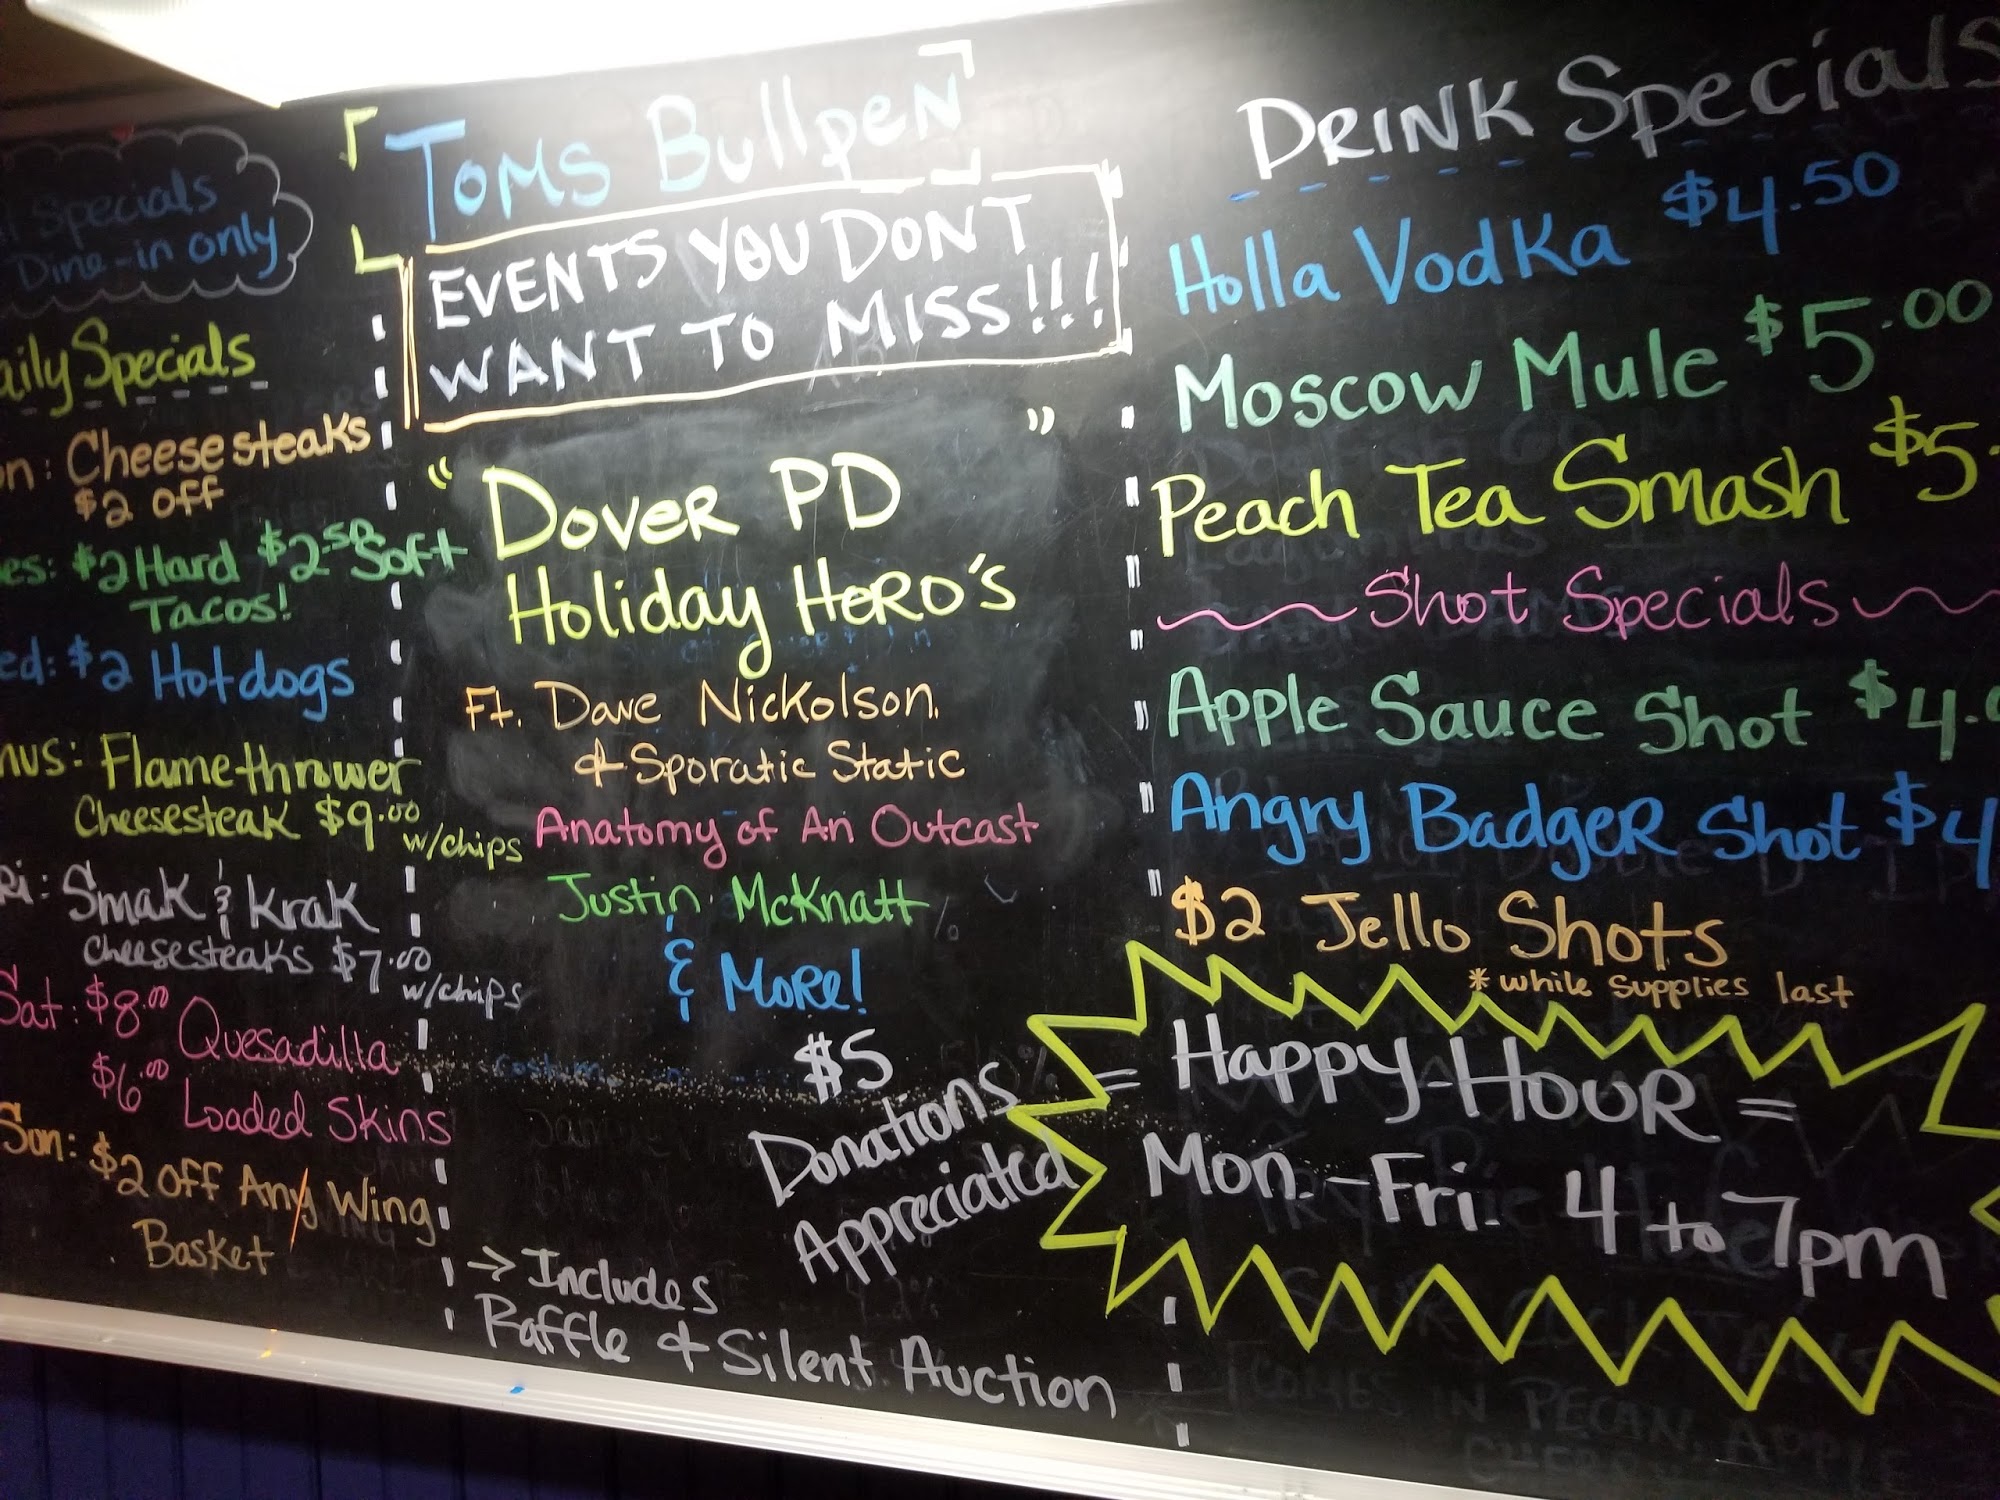 Specials
Dine-in only
Daily Specials
Cheesesteaks
$2 off
$2 Hard $2.50 Soft
Tacos!
$2 Hotdogs
Flamethrower
Cheesesteak $9.00
w/chips
Smak & Krak
Cheesesteaks $7.00
w/chips
Sat: $8.00 Quesadilla
$6.00 Loaded Skins
Sun: $2 off Any Wing
Basket
Toms Bullpen
EVENTS YOU DONT
WANT TO MISS!!!
"Dover PD
Holiday Hero's"
Ft. Dave Nickolson.
& Sporatic Static
Anatomy of An Outcast
Justin McKnatt
& More!
$5
Donations
Appreciated
→ Includes
Raffle & Silent Auction
DRINK Specials
Holla Vodka $4.50
Moscow Mule $5.00
Peach Tea Smash $5.
Shot Specials
Apple Sauce Shot $4.0
Angry Badger Shot $4
$2 Jello Shots
*while supplies last
= Happy-Hour =
Mon.-Fri. 4 to 7pm